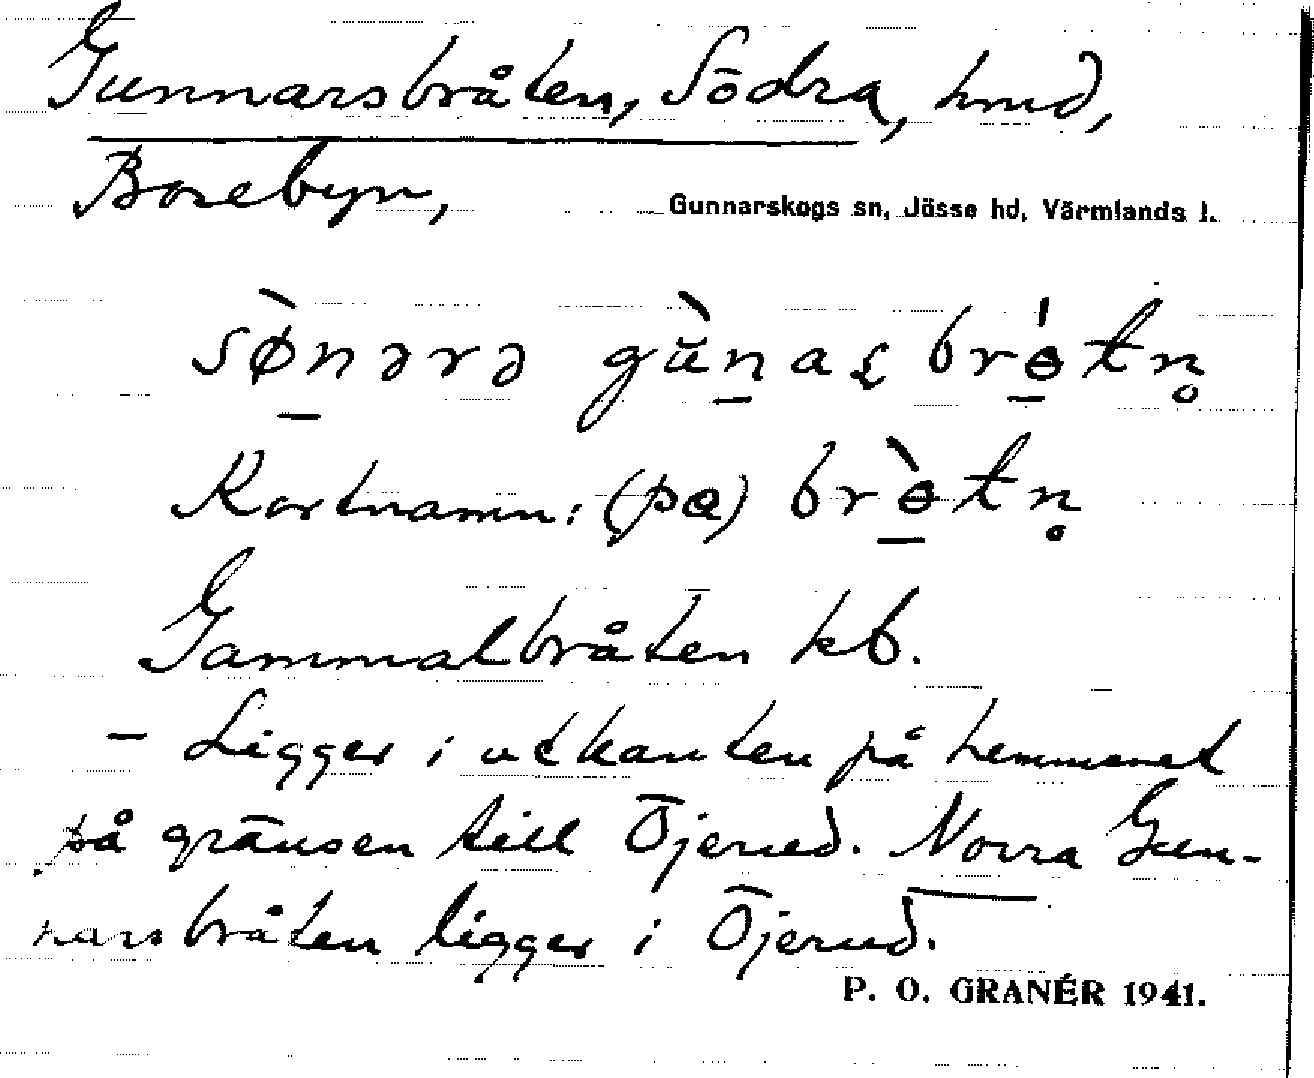 Gunnarsbråten, Södra, hmd,
Bosebyn,
Gunnarskogs sn, Jösse hd, Värmlands l.
sø̀nərə gùnaʂ brɵ́tn̥
Kortnamn: (pɑ) brɵ̀tn̥
Gammalbråten kb.
– Ligger i utkanten på hemmanet
på gränsen till Öjerud. Norra Gun-
narsbråten ligger i Öjerud.
P. O. GRANÉR 1941.